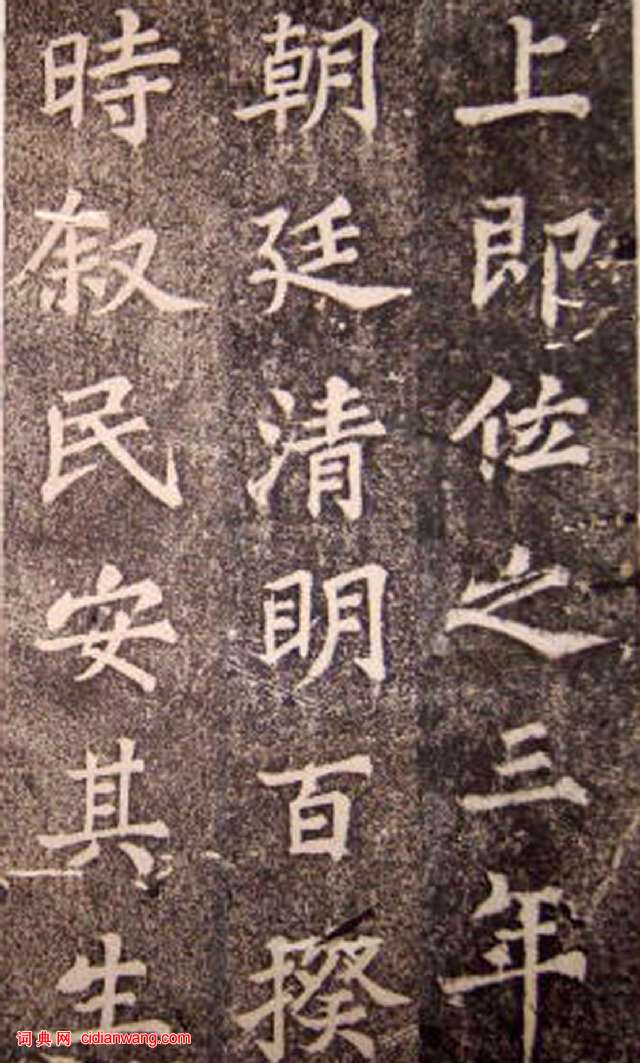 上即位之三年
朝廷清明百揆
時叙民安其生
词典网 cidianwang.com